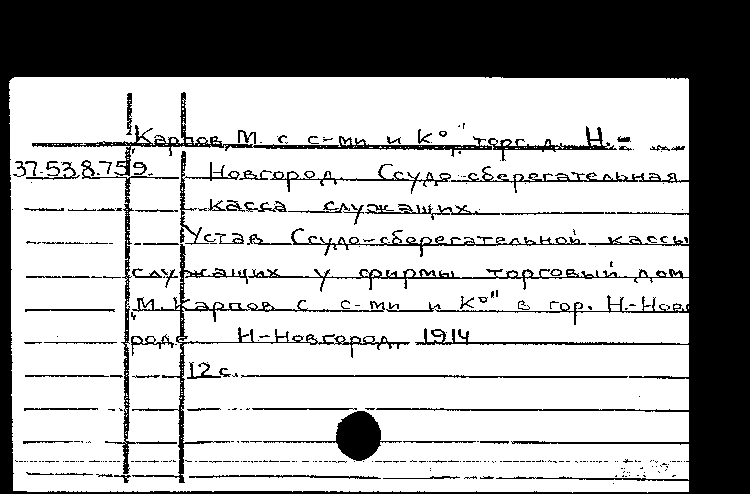 "Карпов, М. с с-ми и К°", торг. д. Н.-
37.53.8.759. Новгород. Ссудо-сберегательная
касса служащих.
Устав Ссудо-сберегательной кассы
служащих у фирмы торговый дом
"М. Карпов с с-ми и К°" в гор. Н.-Новг
роде. Н-Новгород, 1914
12 с.